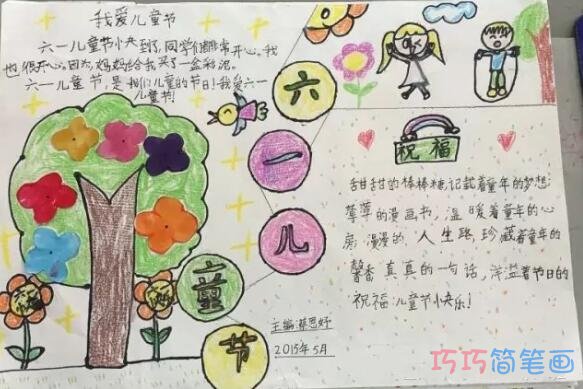 我爱儿童节
六一儿童节快到了,同学们都非常开心。我
也很开心。因为,妈妈给我买了一盒彩泥。
六一儿童节,是我们儿童的节日!我爱六一
儿童节!
六
一
儿
童
节
祝福
甜甜的棒棒糖,记载着童年的梦想;
厚厚的漫画书,温暖着童年的心
房;漫漫的人生路,珍藏着童年的
馨香;真真的一句话,洋溢着节日的
祝福:儿童节快乐!
主编:蔡思妤
2015年5月
巧巧简笔画